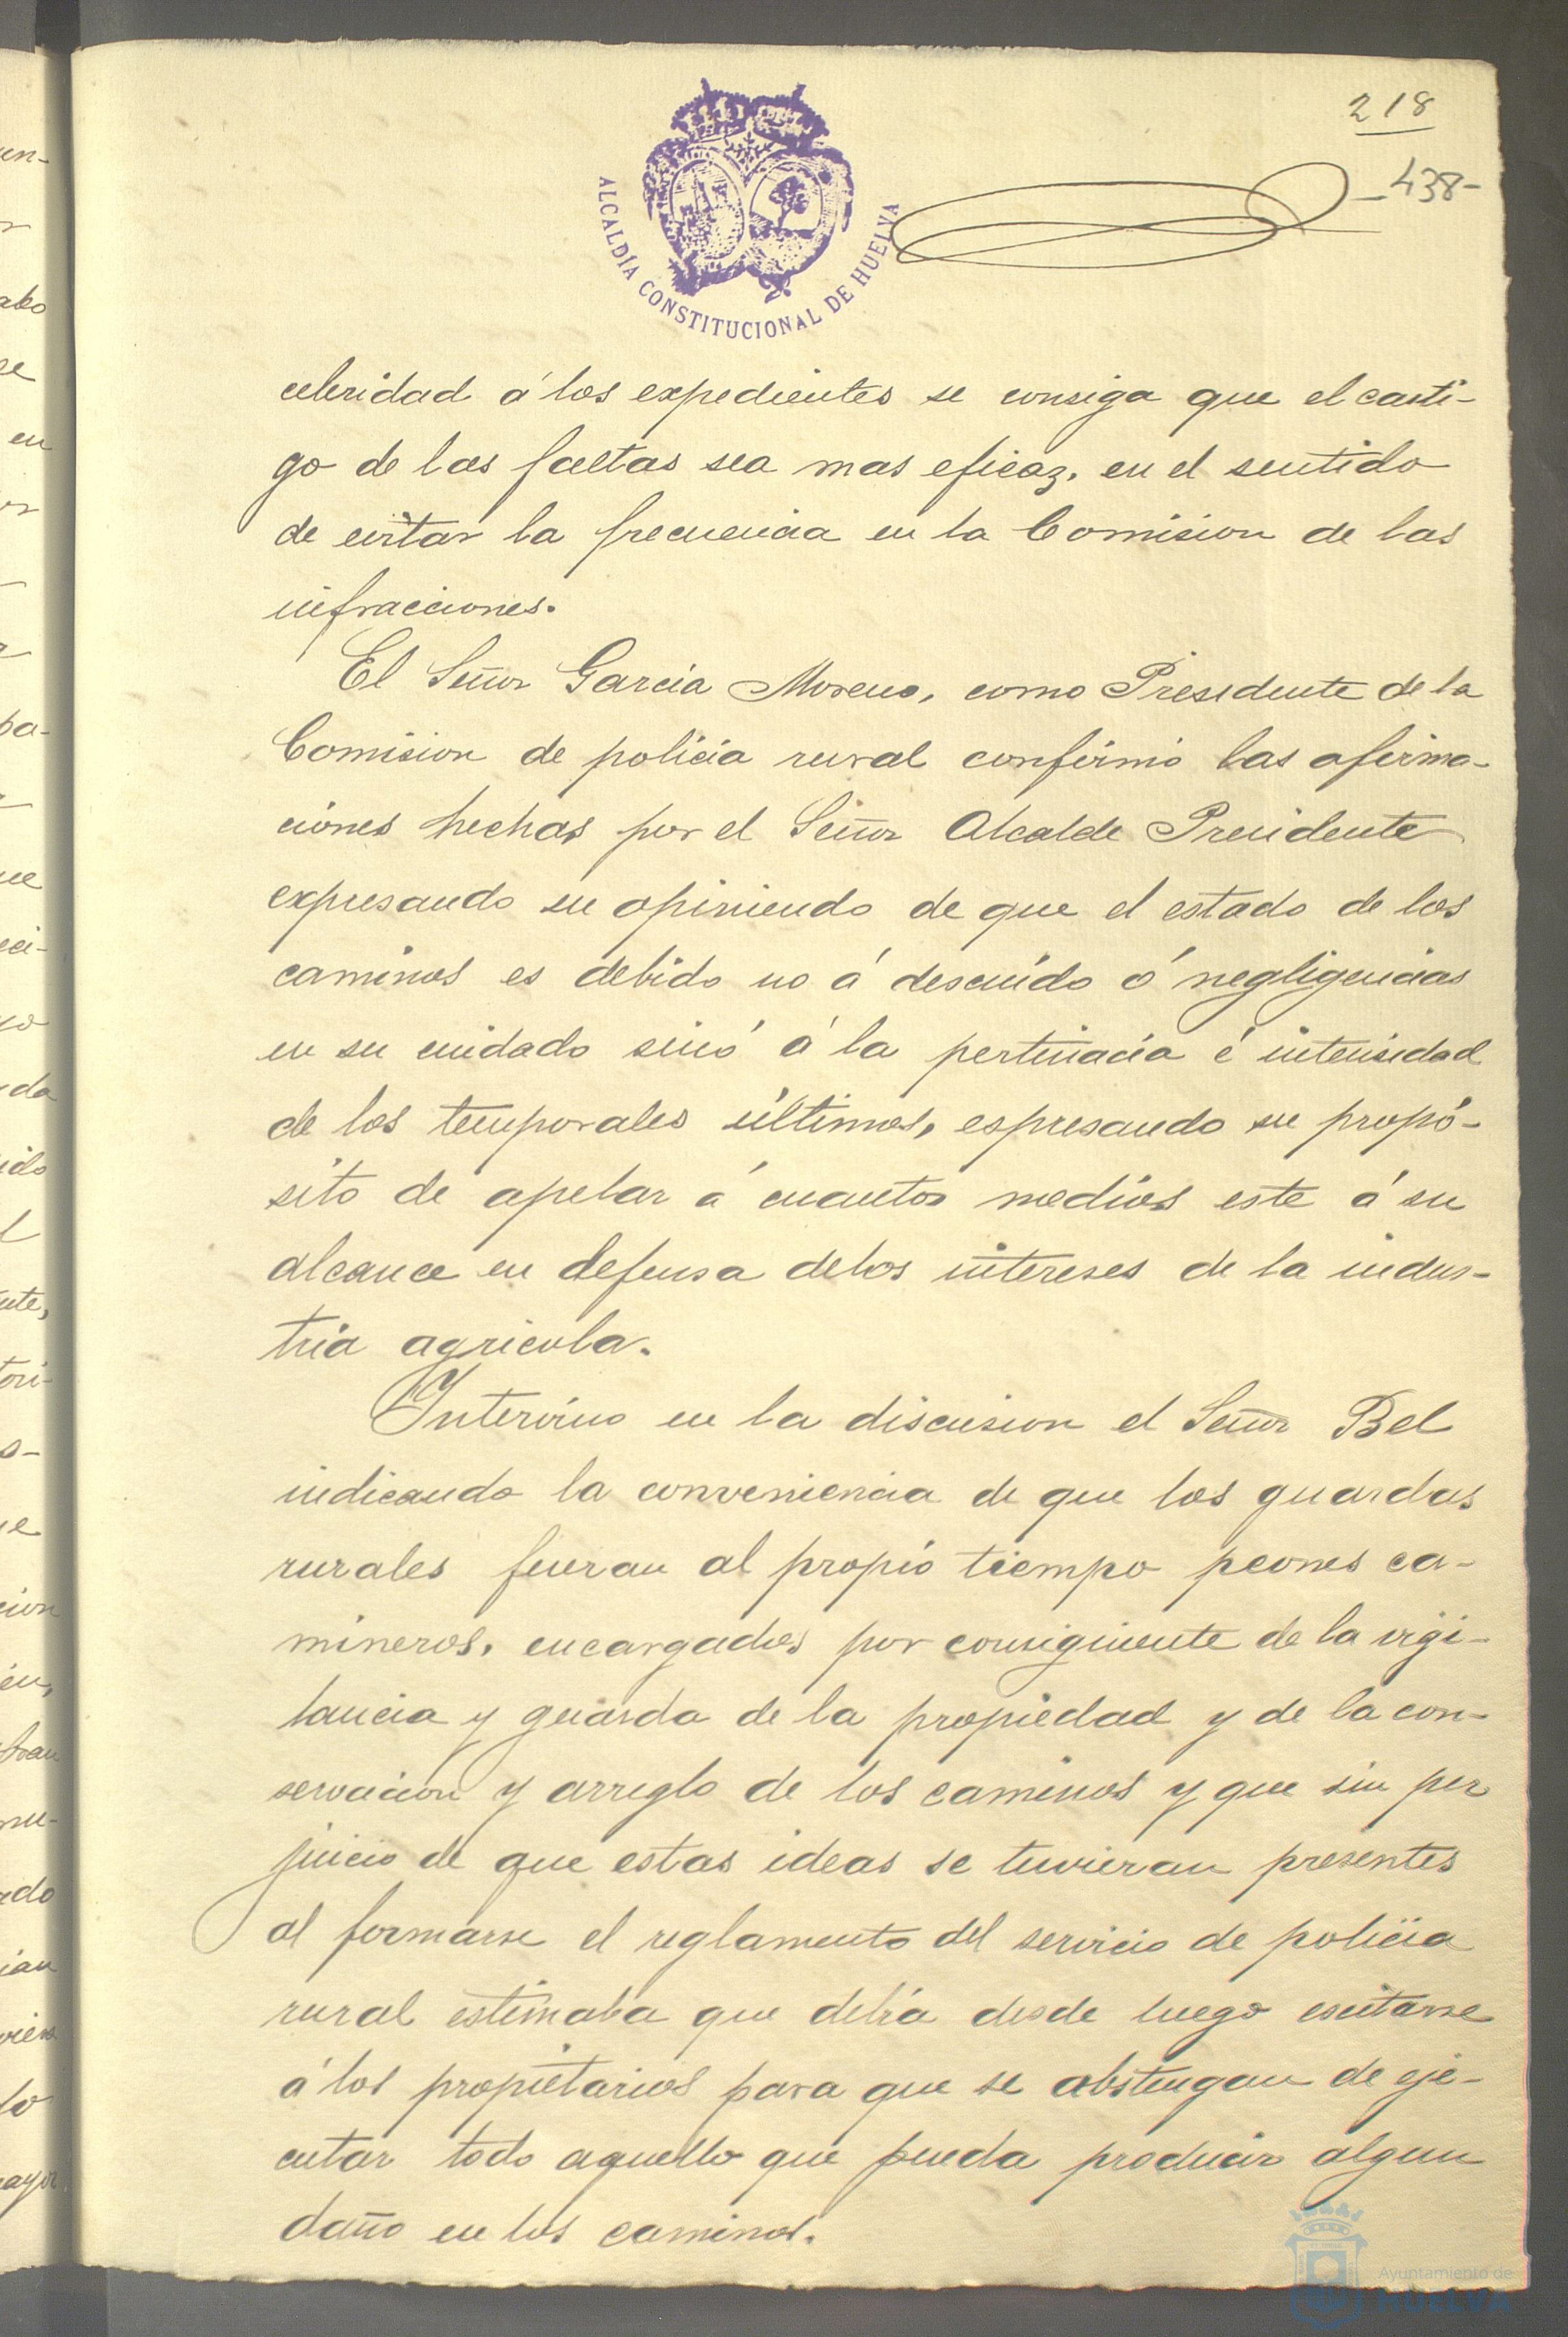 218
-438-
ALCALDÍA CONSTITUCIONAL DE HUELVA
celeridad á los expedientes se consiga que el casti-
go de las faltas sea mas eficaz, en el sentido
de evitar la frecuencia en la Comision de las
infracciones.
El Señor García Moreno, como Presidente de la
Comision de policía rural confirmó las afirma-
ciones hechas por el Señor Alcalde Presidente
expresando su opiniendo de que el estado de los
caminos es debido no á descuido ó negligencias
en su cuidado sinó á la pertinacia é intensidad
de los temporales últimos, espresando su propó-
sito de apelar á cuantos medios este á su
alcance en defensa delos intereses de la indus-
tria agricola.
Intervino en la discusion el Señor Bel
indicando la conveniencia de que los guardas
rurales fueran al propio tiempo peones ca-
mineros, encargados por consiguiente de la vigi-
lancia y guarda de la propiedad y de la con-
servacion y arreglo de los caminos y que sin per
juicio de que estas ideas se tuvieran presentes
al formarse el reglamento del servicio de policía
rural estimaba que debía desde luego escitarse
á los propietarios para que se abstengan de eje-
cutar todo aquello que pueda producir algun
daño en los caminos.
Ayuntamiento de
HUELVA